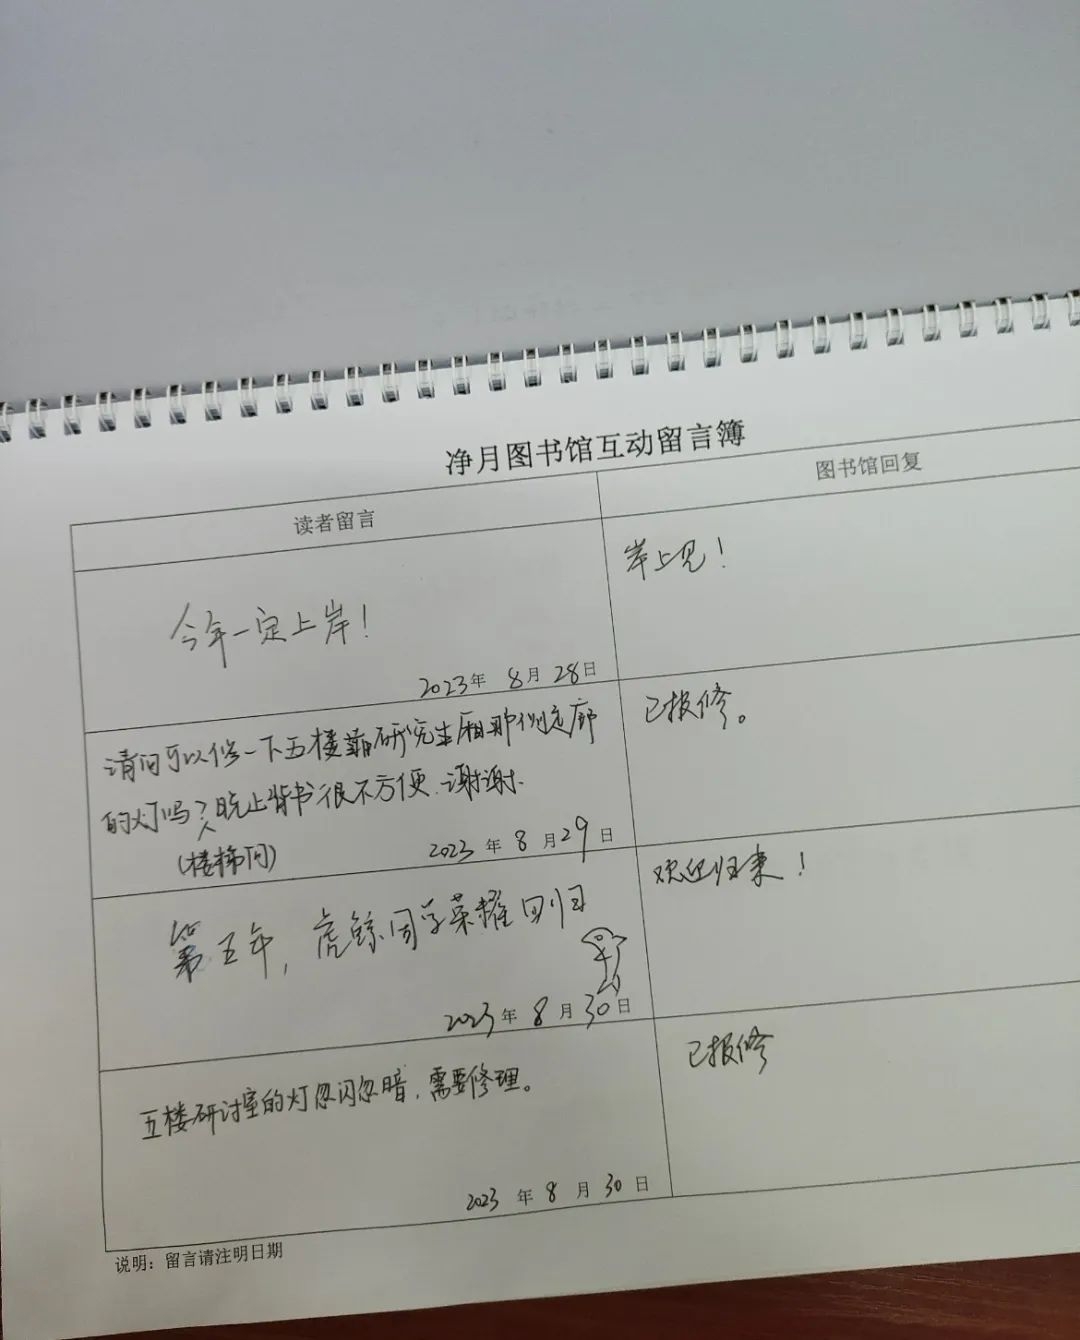 净月图书馆互动留言簿
读者留言
图书馆回复
今年一定上岸！
2023年 8月 28日
岸上见！
请问可以修一下五楼靠研究生厢那侧走廊
的灯吗？晚上背书很不方便.谢谢.
(楼梯间)
2023 年 8 月29 日
已报修。
第五年，虎鲸同学荣耀回归
2023 年 8 月 30 日
欢迎归来！
五楼研讨室的灯忽闪忽暗，需要修理。
2023 年 8 月 30 日
已报修
说明：留言请注明日期